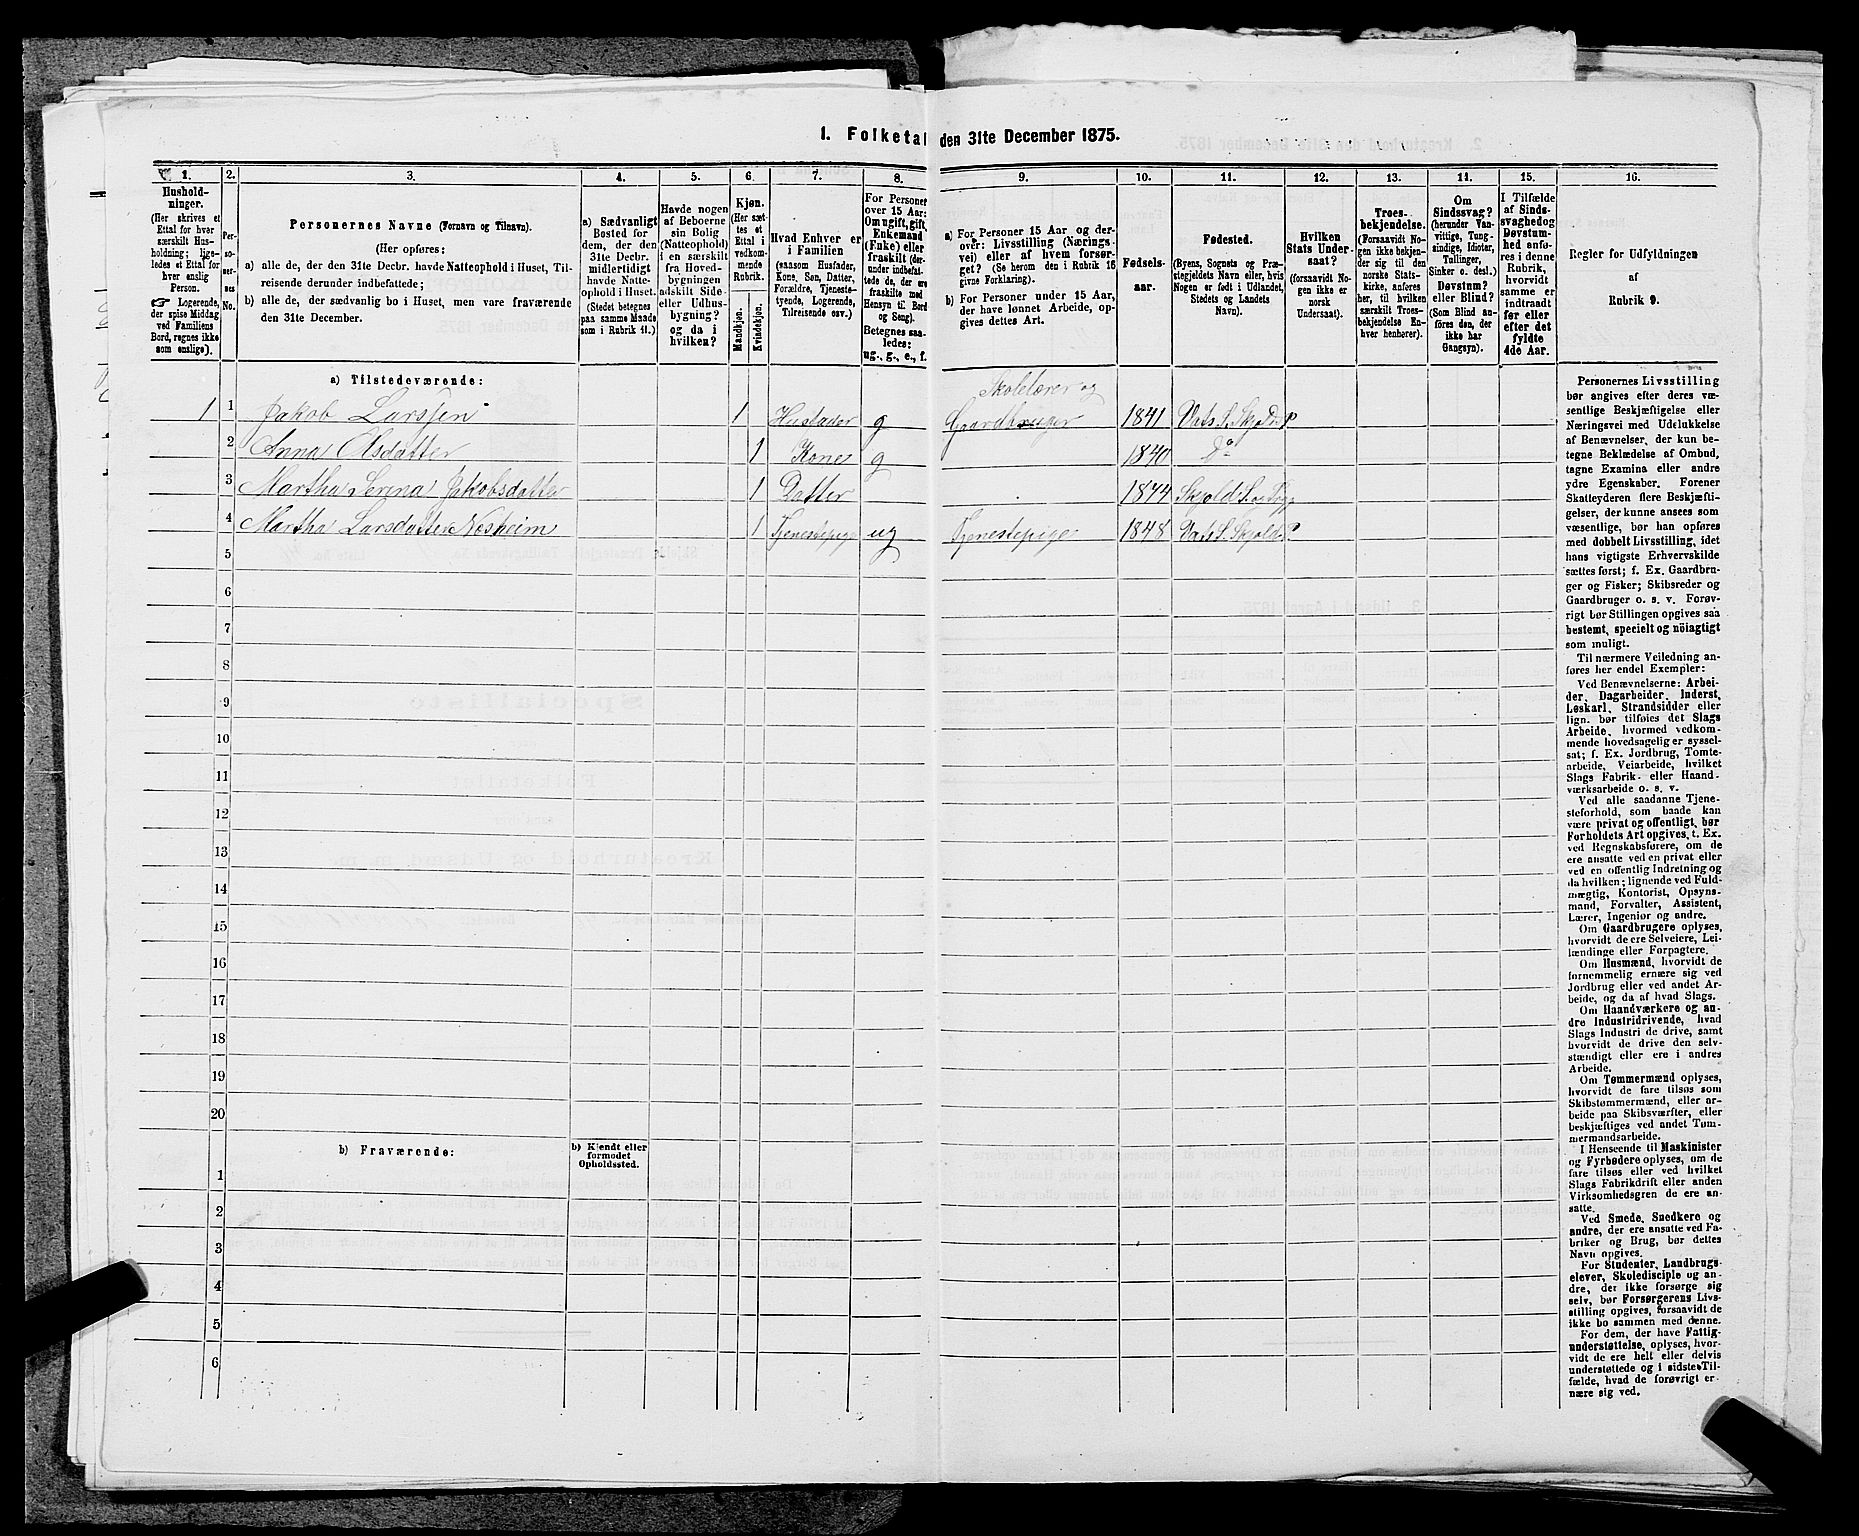 1. Folketal den 31te December 1875.
1. 2. 3. 4. 5. 6. 7. 8. 9. 10. 11. 12. 13. 14. 15. 16.
Hushold-
ninger.
(Her skrives et
Ettal for hver
særskilt Hus-
holdning; lige-
ledes et Ettal for
hver enslig
Person.
☞ Logerende,
der spise Middag
ved Familiens
Bord, regnes ikke
som enslige).
Per-
so-
ner-
nes
No.
Personernes Navne (Fornavn og Tilnavn).
(Her opføres:
a) alle de, der den 31te Decbr. havde Natteophold i Huset, Til-
reisende derunder indbefattede;
b) alle de, der sædvanlig bo i Huset, men vare fraværende
den 31te December.
a) Sædvanligt
Bosted for
dem, der den
31te Decbr.
midlertidigt
havde Natte-
ophold i Huset.
(Stedet betegnes
paa samme Maade
som i Rubrik 11.)
Havde nogen
af Beboerne
sin Bolig
(Natteophold)
i en særskilt
fra Hoved-
bygningen
adskilt Side-
eller Udhus-
bygning?
og da i
hvilken?
Kjøn.
(Her sæt-
tes et
Ettal i
vedkom-
mende
Rubrik.
Mandkjøn.
Kvindekjøn.
Hvad Enhver er
i Familien
(saasom Husfader,
Kone, Søn, Datter,
Forældre, Tjeneste-
tyende, Logerende,
Tilreisende osv.)
For Personer
over 15 Aar:
Om ugift, gift,
Enkemand
(Enke) eller
fraskilt (der-
under indbefat-
tede de, der ere
fraskilte med
Hensyn til Bord
og Seng).
Betegnes saa-
ledes:
ug., g., e., f.
a) For Personer 15 Aar og der-
over: Livsstilling (Nærings-
vei) eller af hvem forsør-
get? (Se herom den i Rubrik 16
givne Forklaring).
b) For Personer under 15 Aar,
der have lønnet Arbeide, op-
gives dettes Art.
Fødsels-
aar.
Fødested.
(Byens, Sognets og Præ-
stegjeldets Navn eller, hvis
Nogen er født i Udlandet,
Stedets og Landets
Navn).
Hvilken
Stats Under-
saat?
(forsaavidt No-
gen ikke er
norsk
Undersaat).
Troes-
bekjendelse.
(Forsaavidt No-
gen ikke bekjen-
der sig til den
norske Stats-
kirke, anføres
her, til hvilken
særskilt Troes-
bekjendelse En-
hver henhører).
Om
Sindssvag?
(herunder Van-
vittige, Tung-
sindige, Idioter,
Tullinger,
Sinker o. desl.)
Døvstum?
eller Blind?
(Som Blind an-
føres den, der
ikke har
Gangsyn).
I Tilfælde
af Sinds-
svaghed og
Døvstum-
hed anfø-
res i denne
Rubrik,
hvorvidt
samme er
indtraadt
før eller
efter det
fyldte
4de Aar.
Regler for Udfyldningen
af
Rubrik 9.
a) Tilstedeværende:
Skolelærer og
1 1 Jakob Larssen 1 Husfader g Gaardbruger 1841 Vats S. Skjold P
2 Anna Olsdatter 1 Kone g 1840 Do
3 Martha Serina Jakobsdatter 1 Datter 1844 Skjold S. og
4 Martha Larsdatter Næsheim 1 Tjenestepige ug Tjenestepige 1848 Vats S. Skjold P
5
6
7
8
9
10
11
12
13
14
15
16
17
18
19
20
b) Fraværende:
b) Kjendt eller
formodet
Opholdssted.
1
2
3
4
5
6
Personernes Livsstilling
bør angives efter deres væ-
sentlige Beskjæftigelse eller
Næringsvei med Udelukkelse
af Benævnelser, der kun be-
tegne Beklædelse af Ombud,
tagne Examina eller andre
ydre Egenskaber. Forener
Skatteyderen flere Beskjæfti-
gelser, der kunne ansees som
væsentlige, bør han opføres
med dobbelt Livsstilling, idet
hans vigtigste Erhvervskilde
sættes først; f. Ex. Gaardbru-
ger og Fisker; Skibsreder og
Gaardbruger o. s. v. Forøv-
rigt bør Stillingen opgives saa
bestemt, specielt og nöiagtigt
som muligt.
Til nærmere Veiledning an-
føres her endel Exempler:
Ved Benævnelserne: Arbei-
der, Dagarbeider, Inderst,
Løskarl, Strandsidder eller
lign. bør tilføies det Slags
Arbeide, hvormed vedkom-
mende hovedsagelig er syssel-
sat; f. Ex. Jordbrug, Tomte-
arbeide, Veiarbeide, hvilket
Slags Fabrik- eller Haand-
værksarbeide o. s. v.
Ved alle saadanne Tjene-
steforhold, som baade kan
være privat og offentligt, bør
Forholdets Art opgives, t. Ex.
ved Regnskabsførere, om de
ere ansatte ved en privat eller
ved en offentlig Indretning og
da hvilken; lignende ved Fuld-
mægtig, Kontorist, Opsyns-
mand, Forvalter, Assistent,
Lærer, Ingeniør og andre.
Om Gaardbrugere oplyses,
hvorvidt de ere Selveiere, Lei-
lændinge eller Forpagtere.
Om Husmænd, hvorvidt de
fornemmelig ernære sig ved
Jordbrug eller ved andet Ar-
beide, og da af hvad Slags.
Om Haandværkere og an-
dre Industridrivende, hvad
Slags Industri de drive, samt
hvorvidt de drive den selv-
stændigt eller ere i andres
Arbeide.
Om Tømmermænd oplyses,
hvorvidt de fare tilsøs som
Skibstømmermænd, eller ar-
beide paa Skibsværfter, eller
beskjæftiges ved andet Tøm-
mermandsarbeide.
I Henseende til Maskinister
og Fyrbødere oplyses, om de
fare tilsøs eller ved hvilket
Slags Fabrikdrift eller anden
Virksomhedsgren de ere an-
satte.
Ved Smede, Snedkere og
andre, der ere ansatte ved Fa-
briker og Brug, bør dettes
Navn opgives.
For Studenter, Landbrugs-
elever, Skoledisciple og an-
dre, der ikke forsørge sig
selv, bør Forsørgerens Livs-
stilling opgives, forsaavidt de
ikke bo sammen med denne.
For dem, der have Fattig-
understøttelse, oplyses, hvor-
vidt de ere helt eller delvis
understøttede og i sidste Til-
fælde, hvad de forøvrigt er-
nære sig ved.